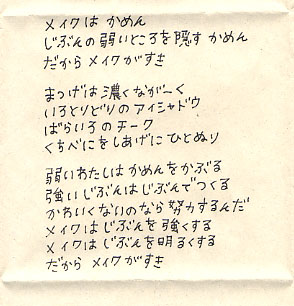 メイクは かめん
じぶんの弱いところを隠す かめん
だから メイクがすき
まつげは濃くながーく
いろとりどりのアイシャドウ
ばらいろのチーク
くちべにをしあげにひとぬり
弱いわたしはかめんをかぶる
強いじぶんはじぶんでつくる
かわいくないのなら努力するんだ
メイクはじぶんを強くする
メイクはじぶんを明るくする
だから メイクがすき